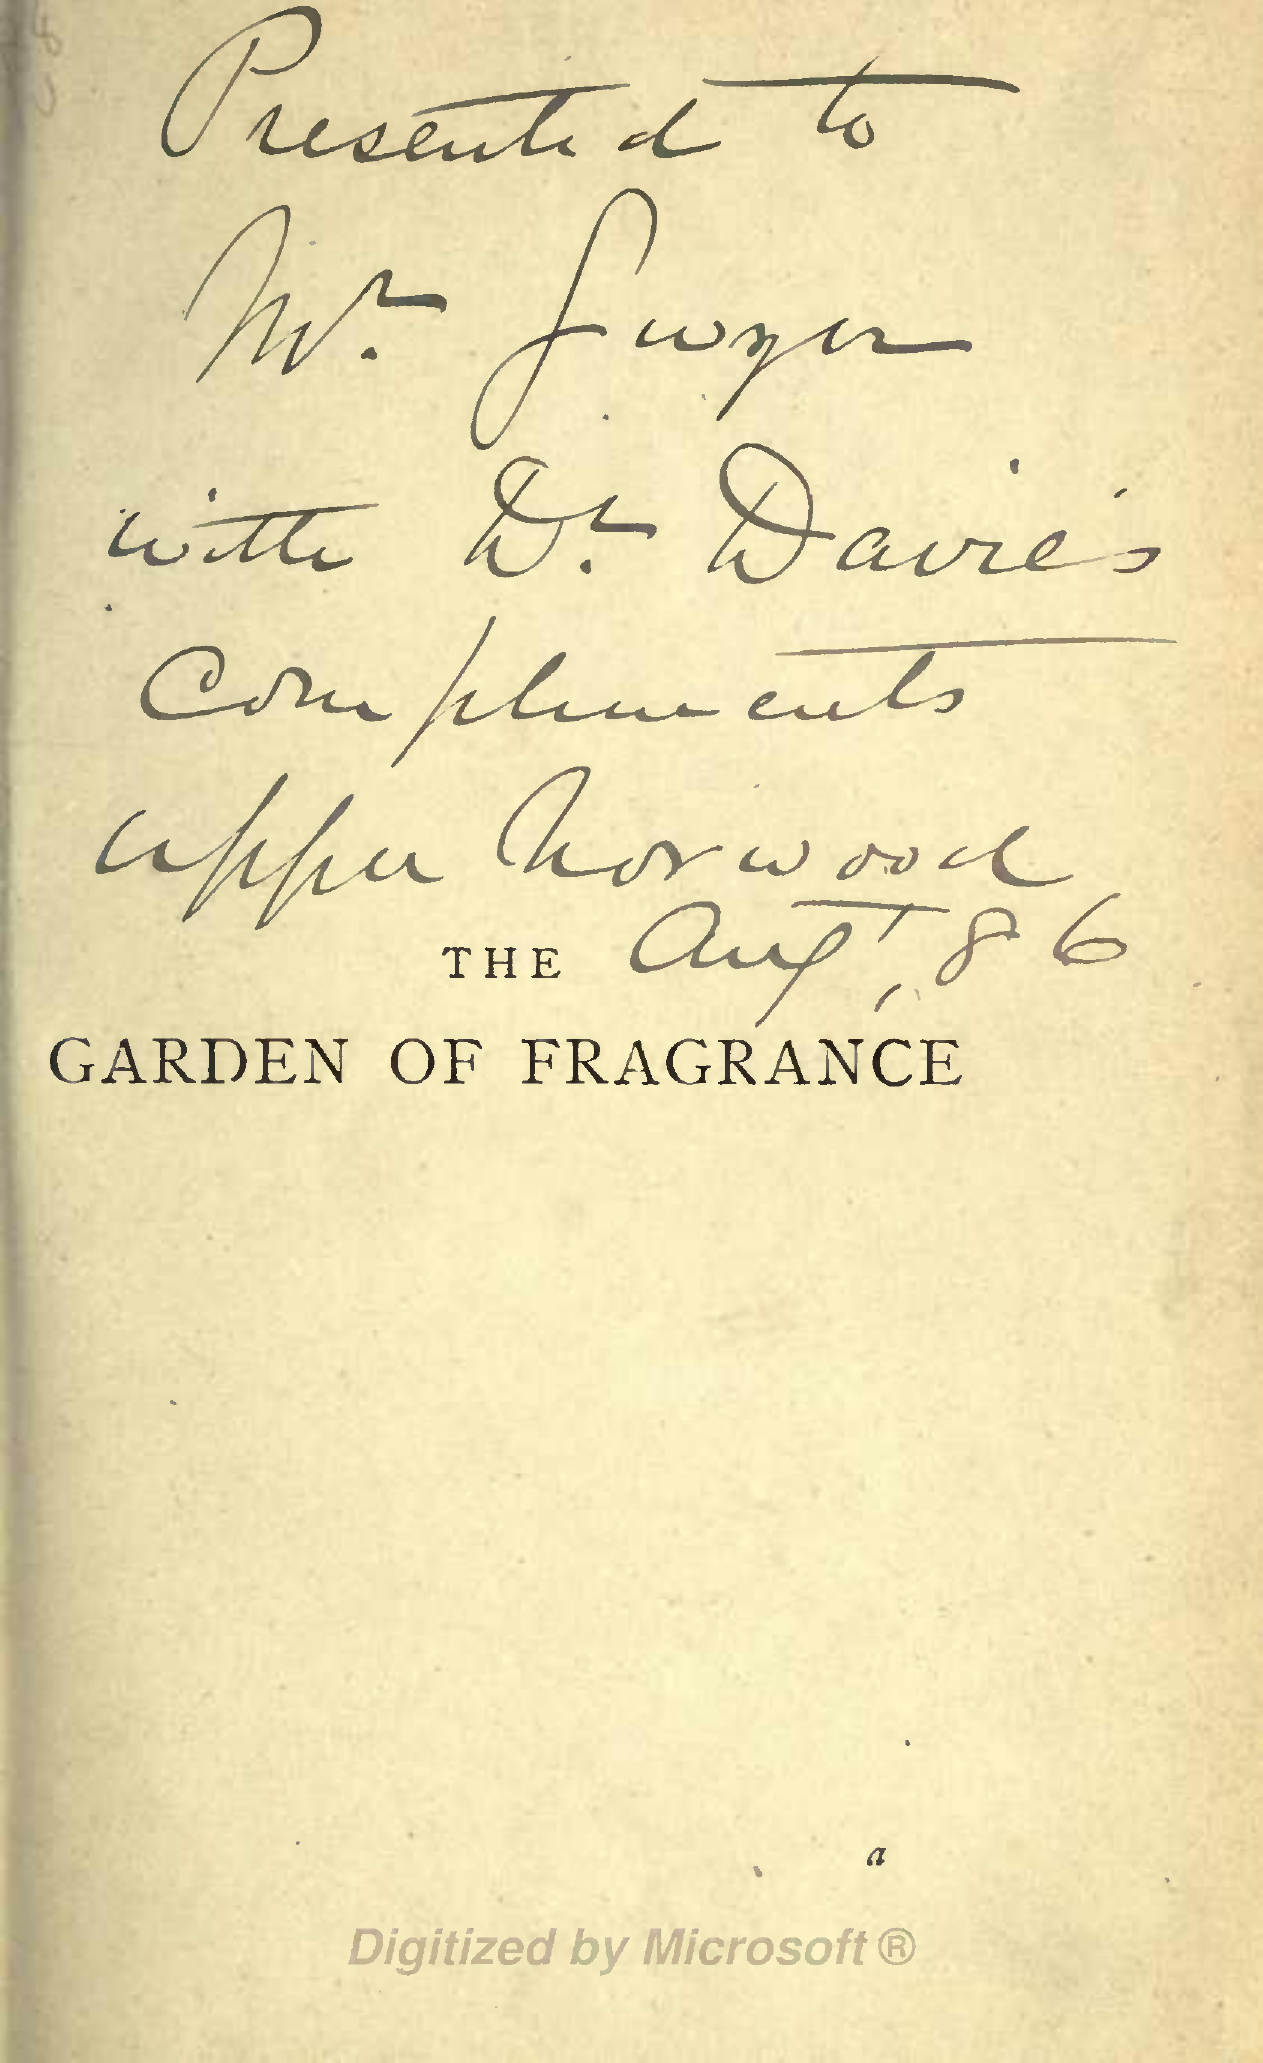 Presented to
Mr.
with Dr. Davie's
Compliments
Upper Norwood
Augt, 86
THE
GARDEN OF FRAGRANCE
a
Digitized by Microsoft ®